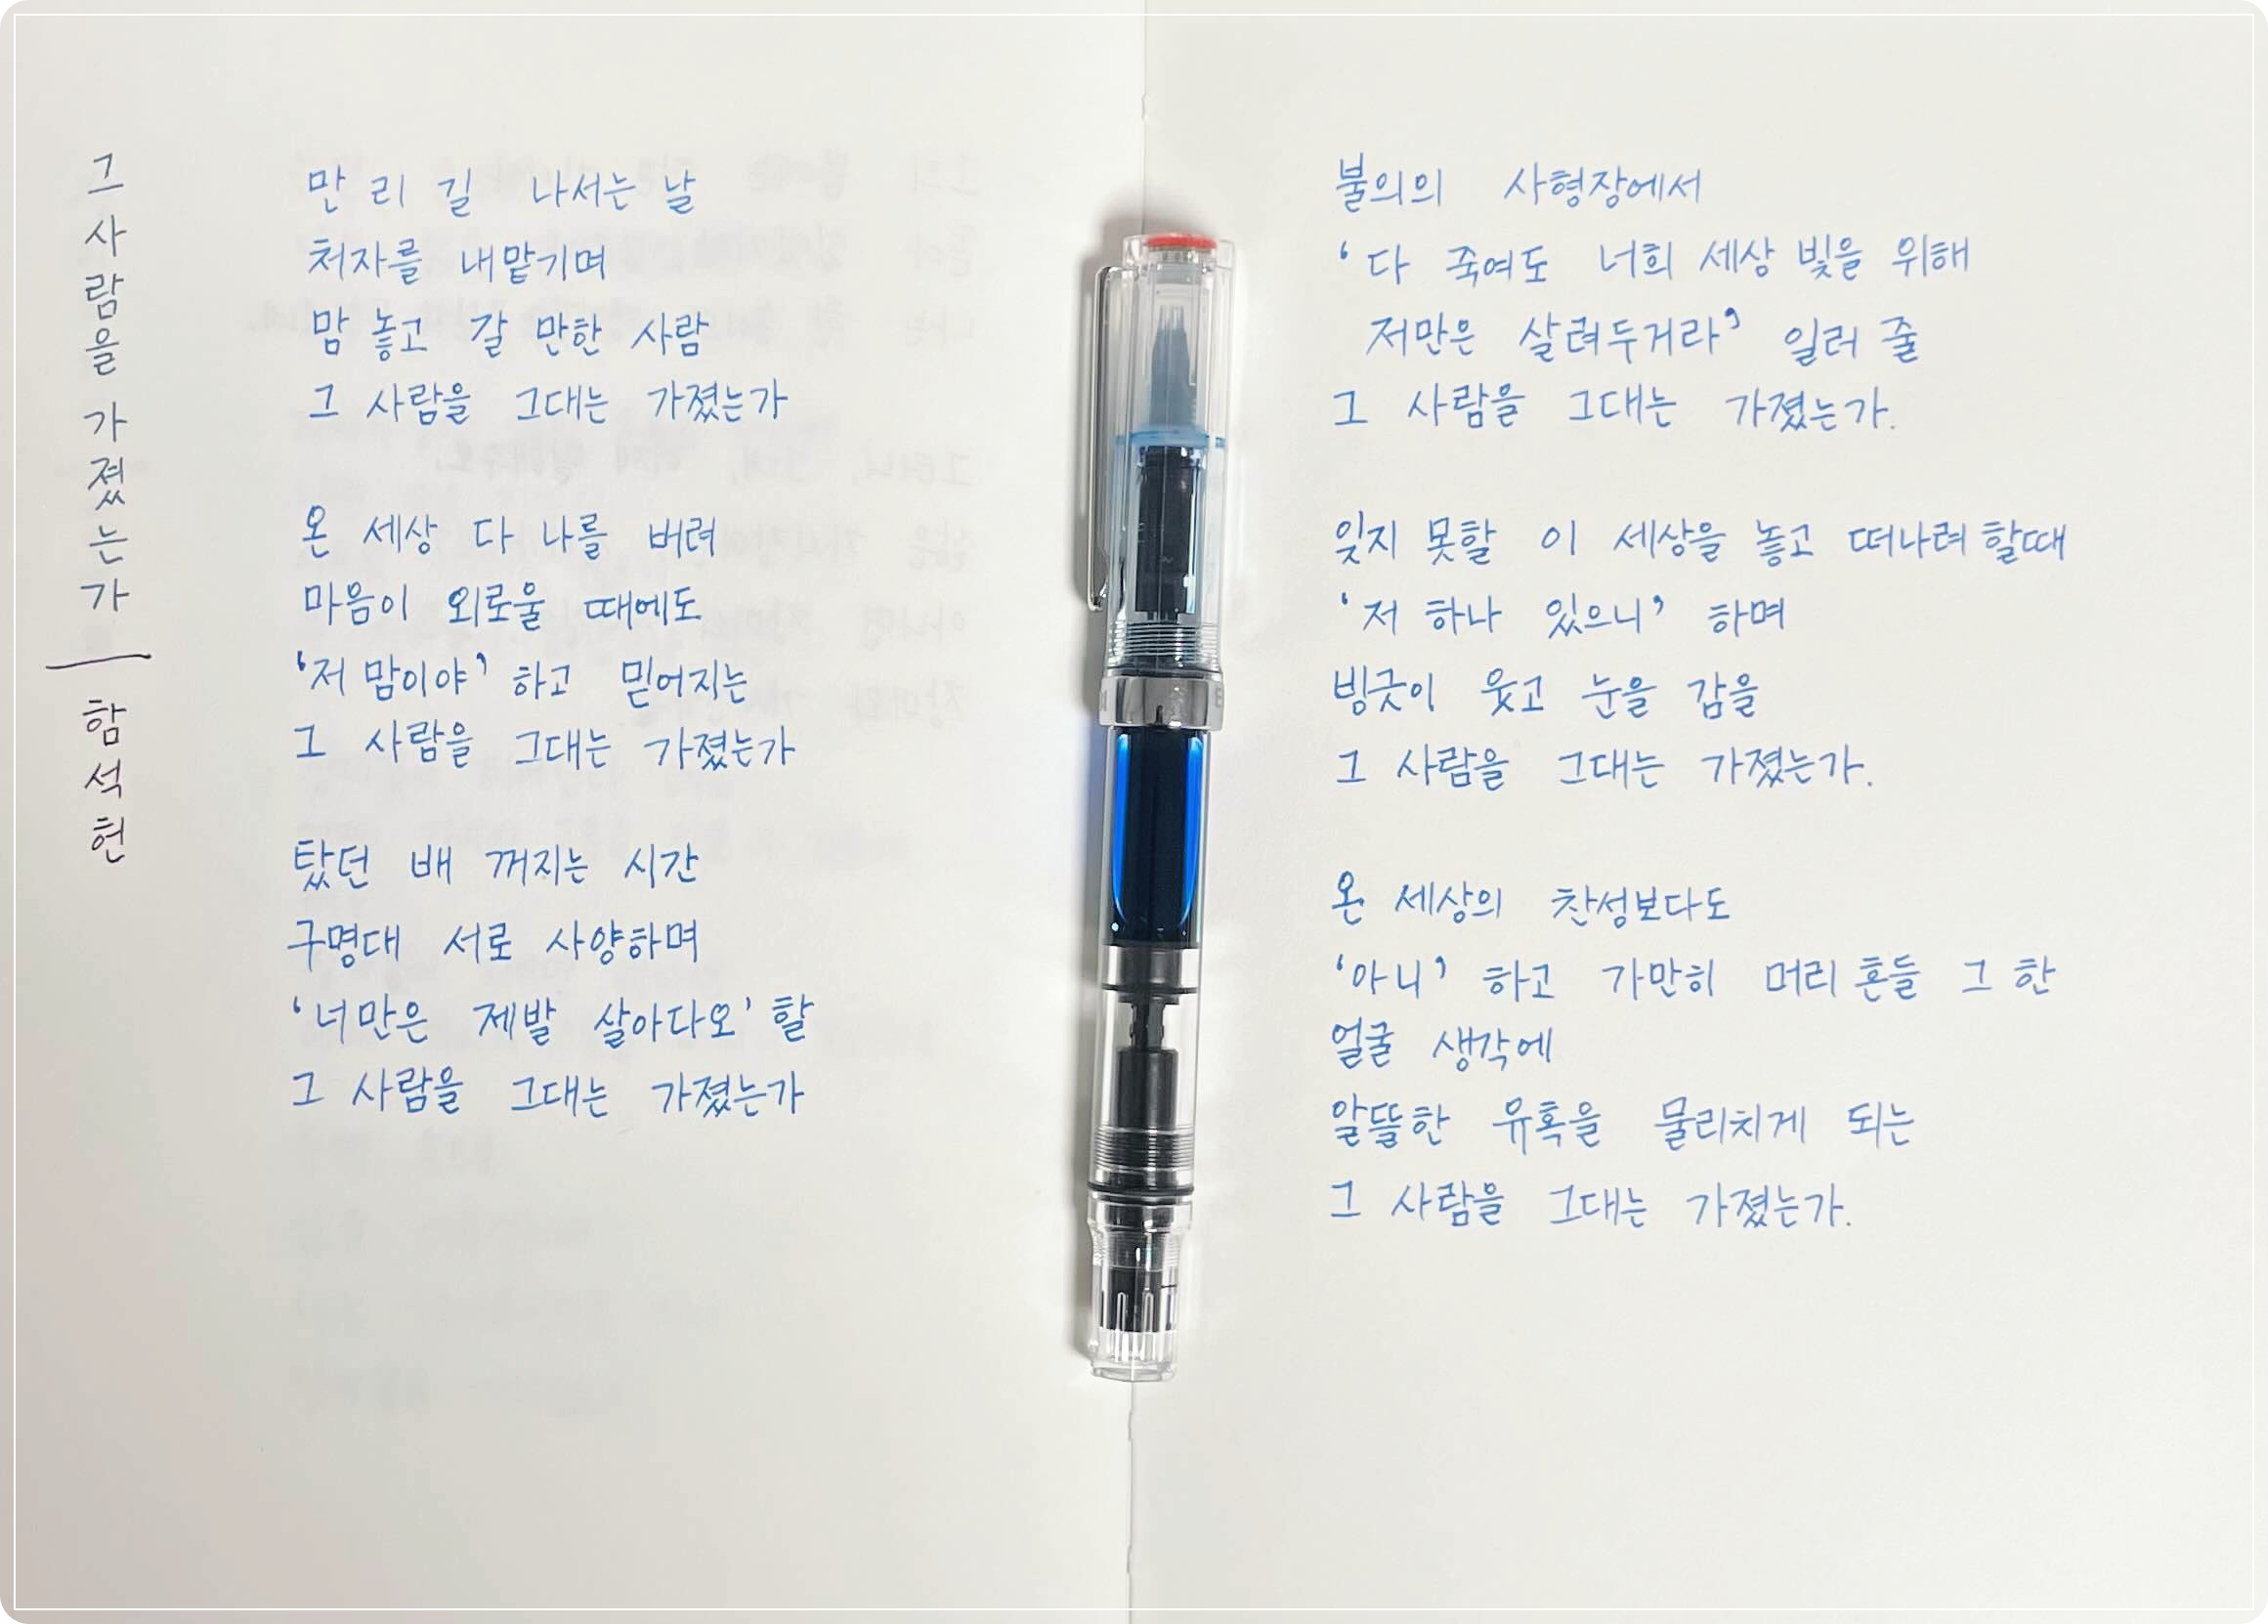 그 사람을 가졌는가 — 함석헌
만 리 길 나서는 날
처자를 내맡기며
맘 놓고 갈 만한 사람
그 사람을 그대는 가졌는가
온 세상 다 나를 버려
마음이 외로울 때에도
‘저 맘이야’ 하고 믿어지는
그 사람을 그대는 가졌는가
탔던 배 꺼지는 시간
구명대 서로 사양하며
‘너만은 제발 살아다오’ 할
그 사람을 그대는 가졌는가
불의의 사형장에서
‘다 죽여도 너희 세상 빛을 위해
저만은 살려두거라’ 일러 줄
그 사람을 그대는 가졌는가.
잊지 못할 이 세상을 놓고 떠나려 할때
‘저 하나 있으니’ 하며
빙긋이 웃고 눈을 감을
그 사람을 그대는 가졌는가.
온 세상의 찬성보다도
‘아니’ 하고 가만히 머리 흔들 그 한
얼굴 생각에
알뜰한 유혹을 물리치게 되는
그 사람을 그대는 가졌는가.